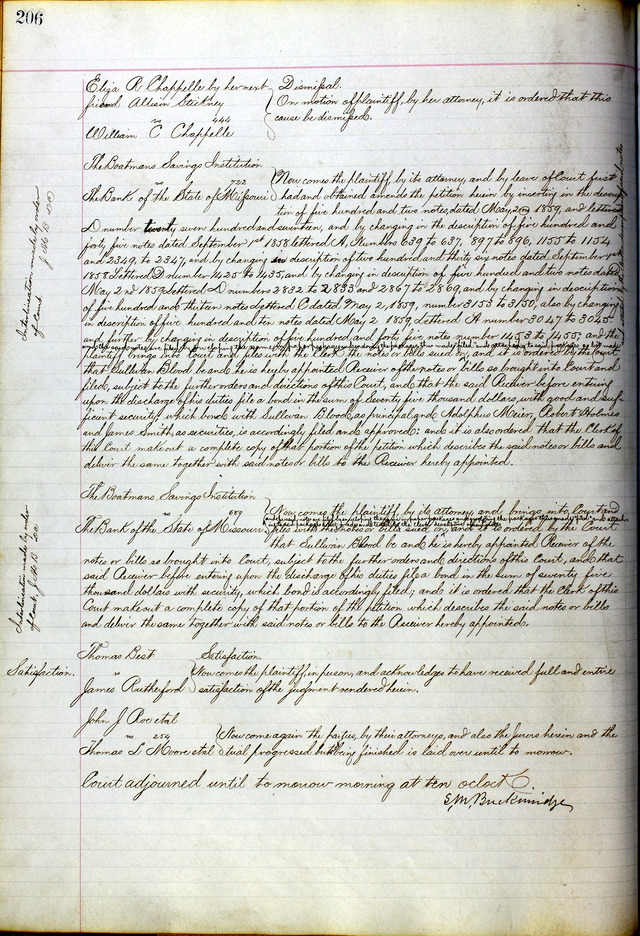 206
Eliza R Chappelle by her next friend Allison Stickney
vs 444
William C Chappelle
Dismissal.
On motion of plaintiff, by her attorney, it is ordered that this
cause be dismissed.
The Boatmans Savings Institution
vs 722
The Bank of the State of Missouri
Now comes the plaintiff by its attorney, and by leave of Court first
had and obtained amends the petition herein by inserting in the descrip-
tion of five hundred and two notes, dated May 2nd 1859, and lettered
D number twenty seven hundred and seventeen, and by changing in the description of five hundred and
forty five notes dated September 1st 1858 lettered A, Numbers 639 to 637, 897 to 896, 1155 to 1154
and 2349, to 2347, and by changing in description of two hundred and thirty six notes dated September 1st
1858 Lettered D number 1425 to 1435, and by changing in description of five hundred and two notes dated
May 2nd 1859 Lettered D numbers 2832 to 2833 and 2867 to 2869, and by changing in description
of five hundred and thirteen notes Lettered C dated May 2, 1859, number 3153 to 3150, also by changing
in description of five hundred and ten notes dated May 2 1859, Lettered A number 3047 to 3045
and further by changing in description of five hundred and forty five notes number 1453 to 1455, and the
plaintiff brings into Court and files with the Clerk the notes or bills sued on, and it is ordered by the Court
that Sullivan Blood be and he is hereby appointed Receiver of the notes or bills so brought into Court and
filed, subject to the further orders and directions of this Court, and that the said Receiver before entering
upon the discharge of his duties file a bond in the sum of Seventy five thousand dollars, with good and suf-
ficient security, which bond with Sullivan Blood, as principal and Adolphus Meier, Robert Holmes
and James Smith, as securities, is accordingly filed and approved: and it is also ordered that the Clerk of
this Court make out a complete copy of that portion of the petition which describes the said notes or bills and
deliver the same together with said notes or bills to the Receiver hereby appointed.
Interlineation made by order
of Court
The Boatmans Savings Institution
vs 689
The Bank of the State of Missouri
Now comes the plaintiff by its attorney, and brings into Court and
files with the notes or bills sued on, and it is ordered by the Court
that Sullivan Blood be and he is hereby appointed Receiver of the
notes or bills so brought into Court, subject to the further orders and directions of this Court, and that
said Receiver before entering upon the discharge of his duties file a bond in the sum of seventy five
thousand dollars with security, which bond is accordingly filed; and it is ordered that the Clerk of this
Court make out a complete copy of that portion of the petition which describes the said notes or bills
and deliver the same together with said notes or bills to the Receiver hereby appointed.
Interlineation made by order
of Court
Satisfaction.
Thomas Best
vs
James Rutherford
Satisfaction.
Now comes the plaintiff, in person, and acknowledges to have received full and entire
satisfaction of the judgment rendered herein.
John J Roe et al
vs 254
Thomas L Moore et al
Now come again the parties, by their attorneys, and also the Jurors herein and the
trial progressed but being finished is laid over until to morrow.
Court adjourned until to morrow morning at ten oclock.